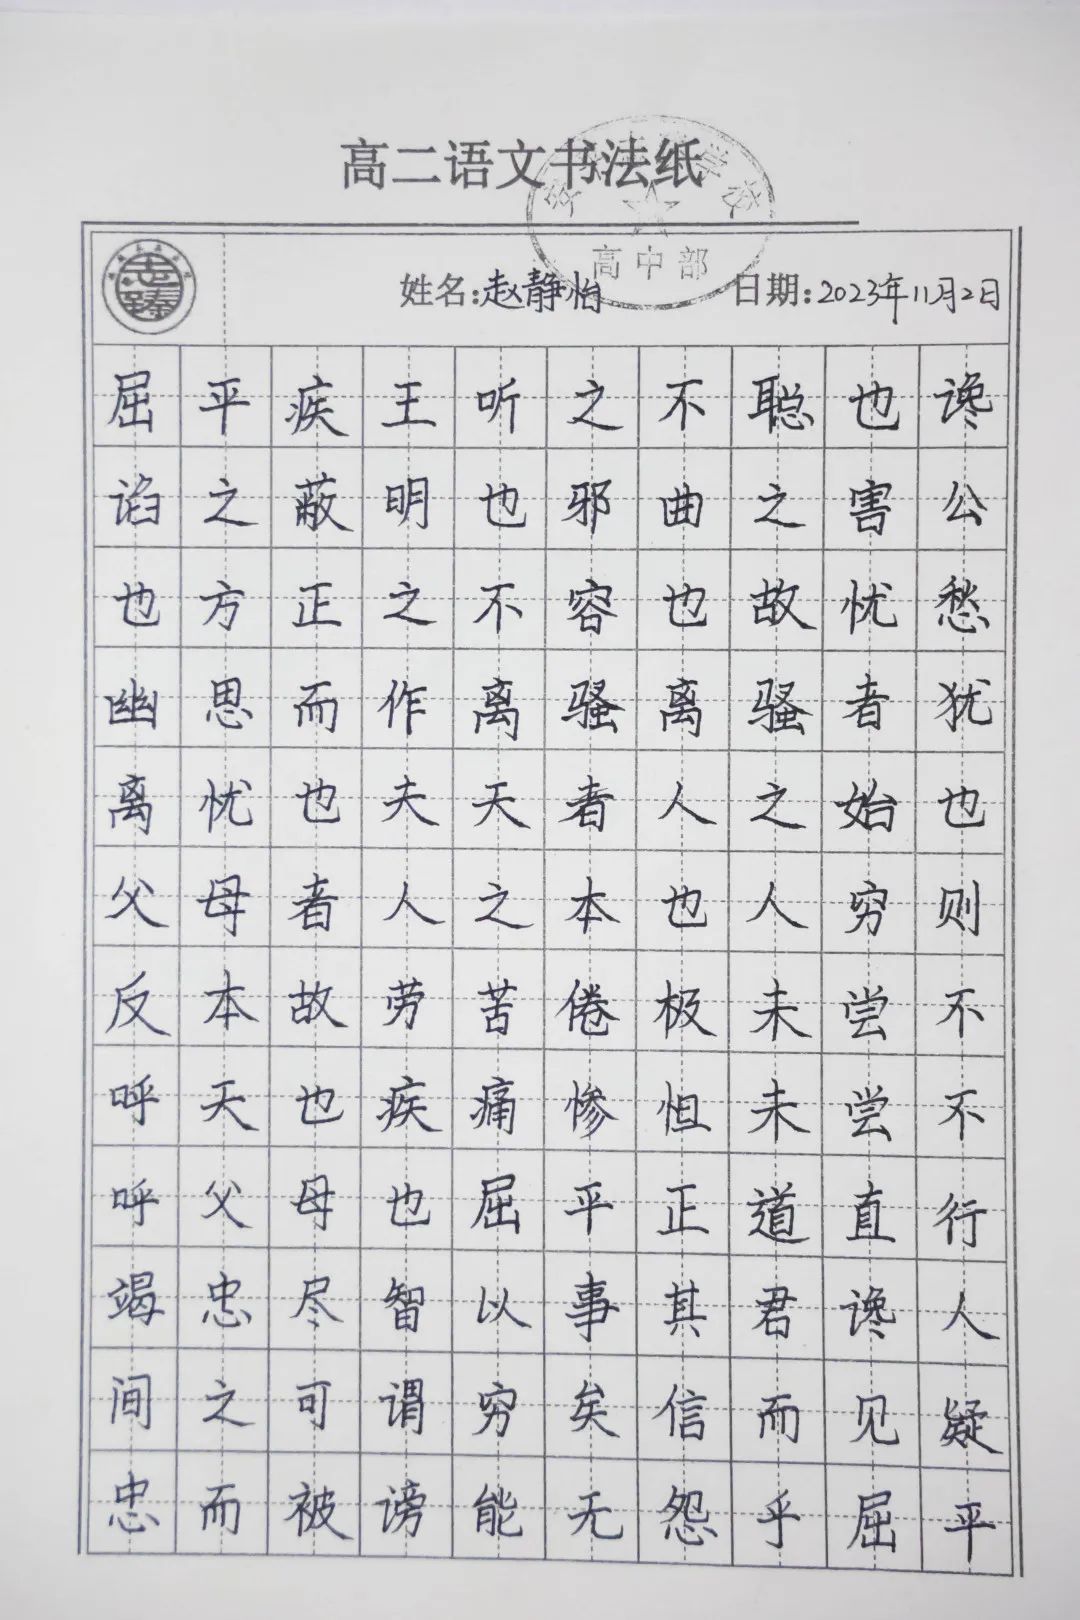 高二语文书法纸
学校
高中部
姓名:赵静怡 日期:2023年11月2日
屈平疾王听之不聪也谗
谄之蔽明也邪曲之害公
也方正之不容也故忧愁
幽思而作离骚离骚者犹
离忧也夫天者人之始也
父母者人之本也人穷则
反本故劳苦倦极未尝不
呼天也疾痛惨怛未尝不
呼父母也屈平正道直行
竭忠尽智以事其君谗人
间之可谓穷矣信而见疑
忠而被谤能无怨乎屈平